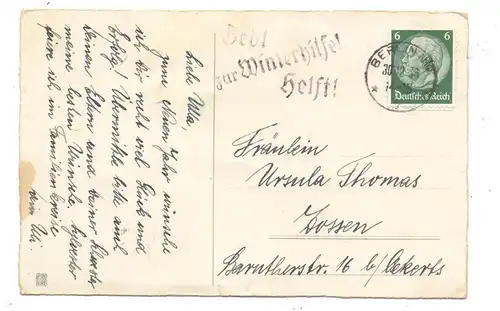 Liebe Ulla,
zum Neuen Jahr wünsche
ich Dir recht viel Glück und
Erfolg! Übermittle bitte auch
Deinen Eltern und Deiner Schwester
meine besten Wünsche. Sylvester
feiere ich im Familienkreise
Gebt
zur Winterhilfe!
Helft!
BERLIN
30.12.
6 6
Deutsches Reich
Fräulein
Ursula Thomas
Zossen
Barutherstr. 16 b/Eckerts